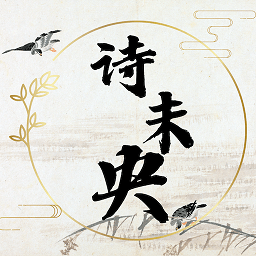 诗未央